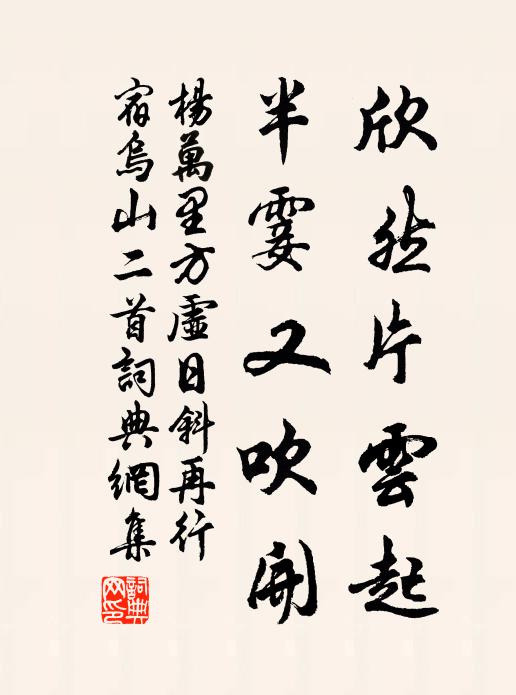 欣然片雲起
半霎又吹開
楊萬里方虛日斜再行
宿烏山二首詞典網集
詞典
網印